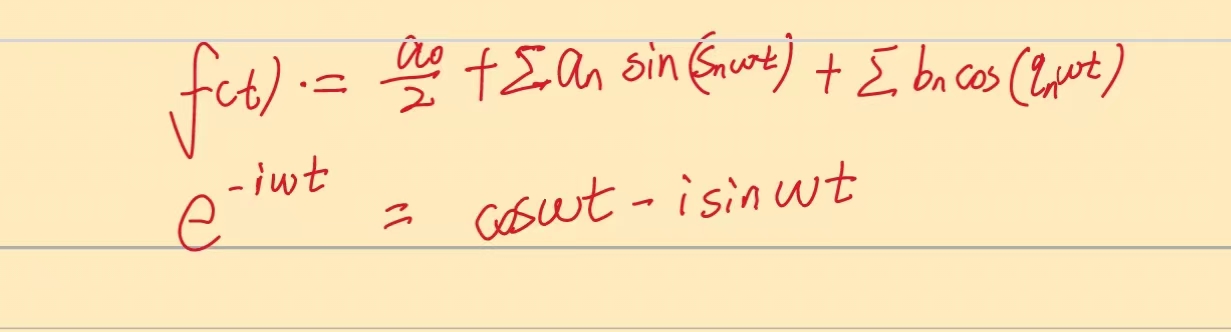 f(t) ·= a₀/2 + Σ aₙ sin(ζₙωt) + Σ bₙ cos(qₙωt)
e^{-iωt} = cosωt - i sin ωt